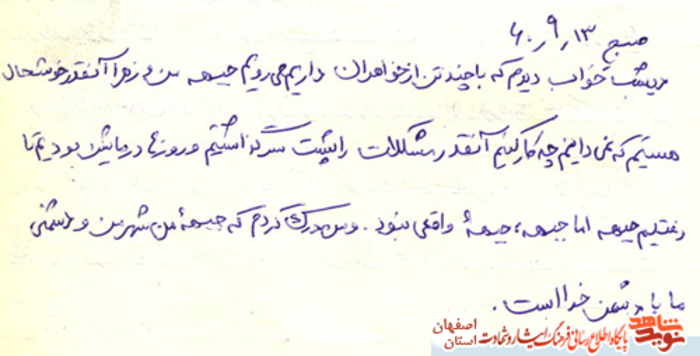 صبح ۶۰٫۹٫۱۳
دیشب خواب دیدم که با چند تن از خواهران داریم می رویم جبهه من و زهرا آنقدر خوشحال
هستیم که نمی دانیم چه کار کنیم آنقدر مشکلات را پشت سر گذاشتیم و روزها در مایش بودیم تا
رفتیم جبهه اما جبهه، جبههٔ واقعی نبود. و من درک کردم که جبههٔ من شهر من و دشمنی
ما با دشمن خدا است.
نوید شاهد
پایگاه اطلاع رسانی فرهنگ ایثار و شهادت
اصفهان
استان